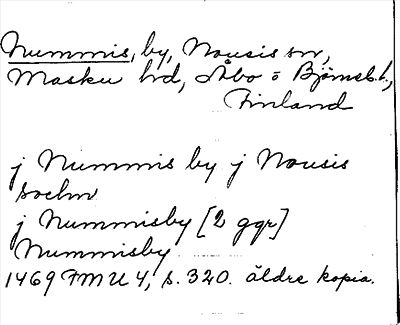 Nummis, by, Nousis sn,
Masku hd, Åbo o Björneb. l.,
Finland
j Nummis by j Nousis
sochn
j Nummisby [2 ggr]
Nummisby
1469 FMU 4, s. 320. äldre kopia.